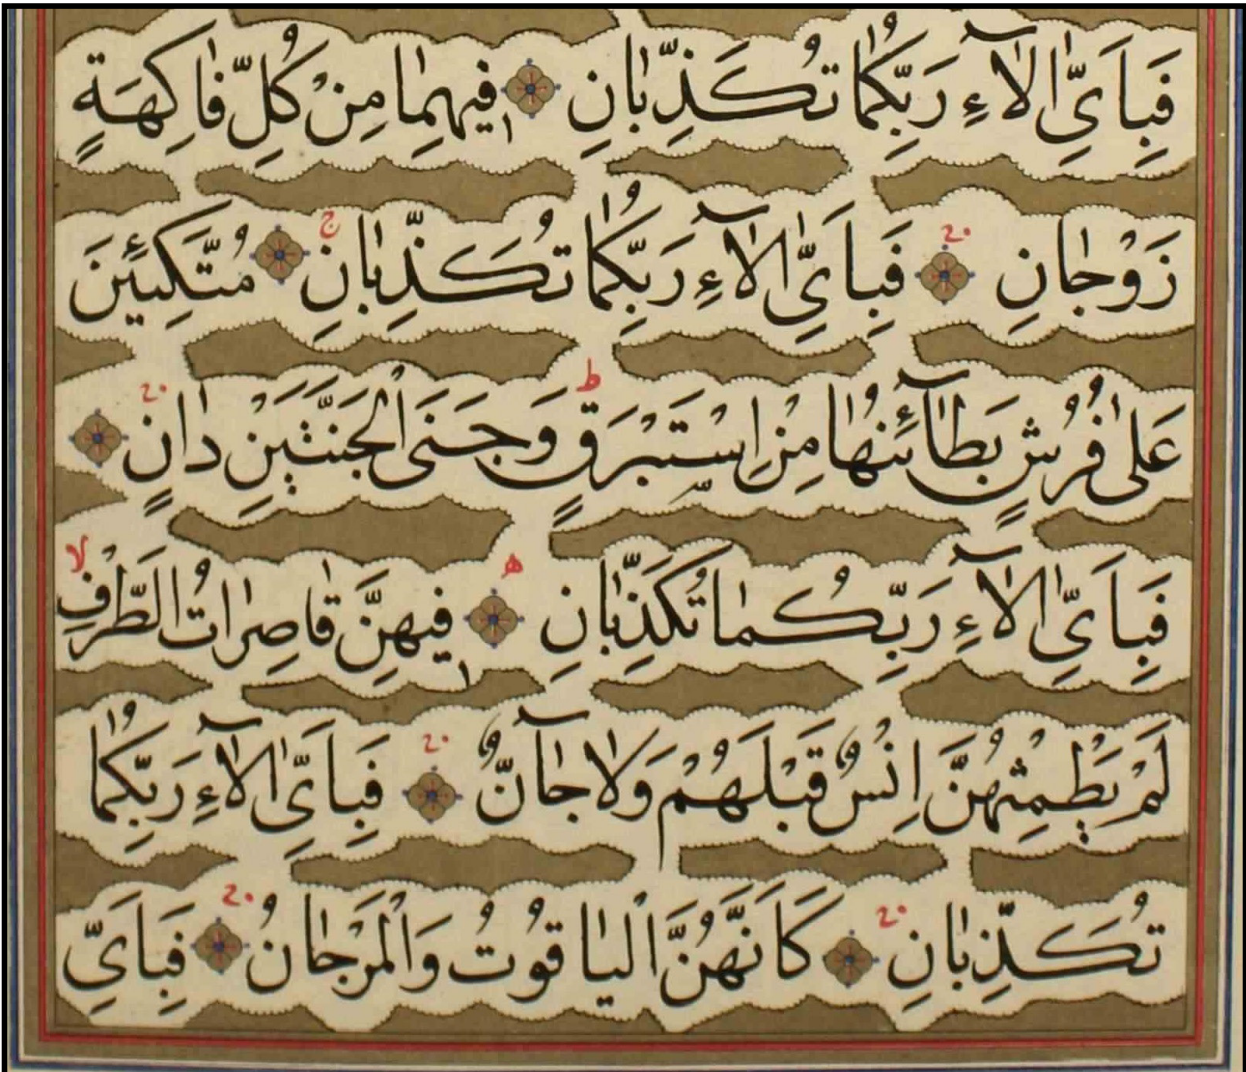 فَبِاَىِّ اٰلَآءِ رَبِّكُمٰا تُكَذِّبٰانِ فيهِمٰا مِنْ كُلِّ فٰاكِهَةٍ
زَوْجٰانِ فَبِاَىِّ اٰلَآءِ رَبِّكُمٰا تُكَذِّبٰانِ مُتَّكِـِٔينَ
عَلىٰ فُرُشٍ بَطٰآئِنُهٰا مِنْ اِسْتَبْرَقٍ وَجَنَى الْجَنَّتَيْنِ دٰانٍ
فَبِاَىِّ اٰلَآءِ رَبِّكُمٰا تُكَذِّبٰانِ فيهِنَّ قٰاصِرٰاتُ الطَّرْفِ
لَمْ يَطْمِثْهُنَّ اِنْسٌ قَبْلَهُمْ وَلٰا جٰآنٌّ فَبِاَىِّ اٰلَآءِ رَبِّكُمٰا
تُكَذِّبٰانِ كَاَنَّهُنَّ الْيٰاقُوتُ وَالْمَرْجٰانُ فَبِاَىِّ